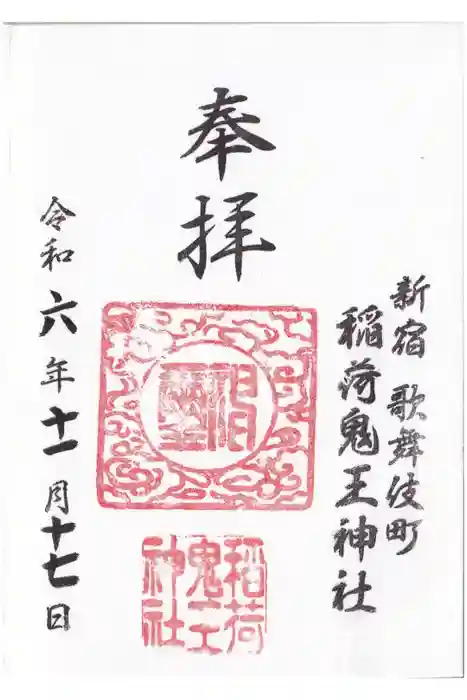 新宿 歌舞伎町
稲荷鬼王神社
奉拝
稲荷
鬼王
神社
令和六年十一月十七日